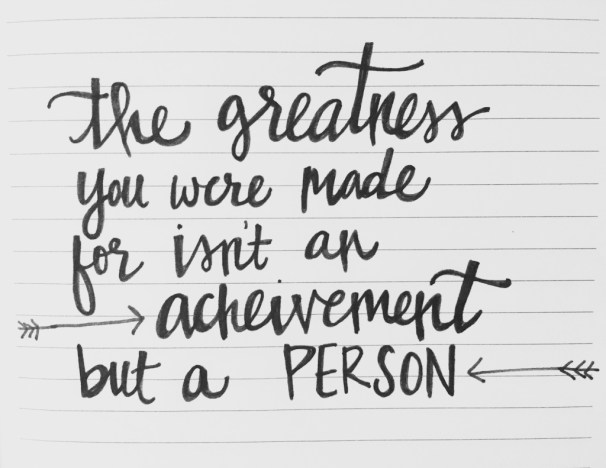 the greatness
you were made
for isn't an
acheivement
but a PERSON